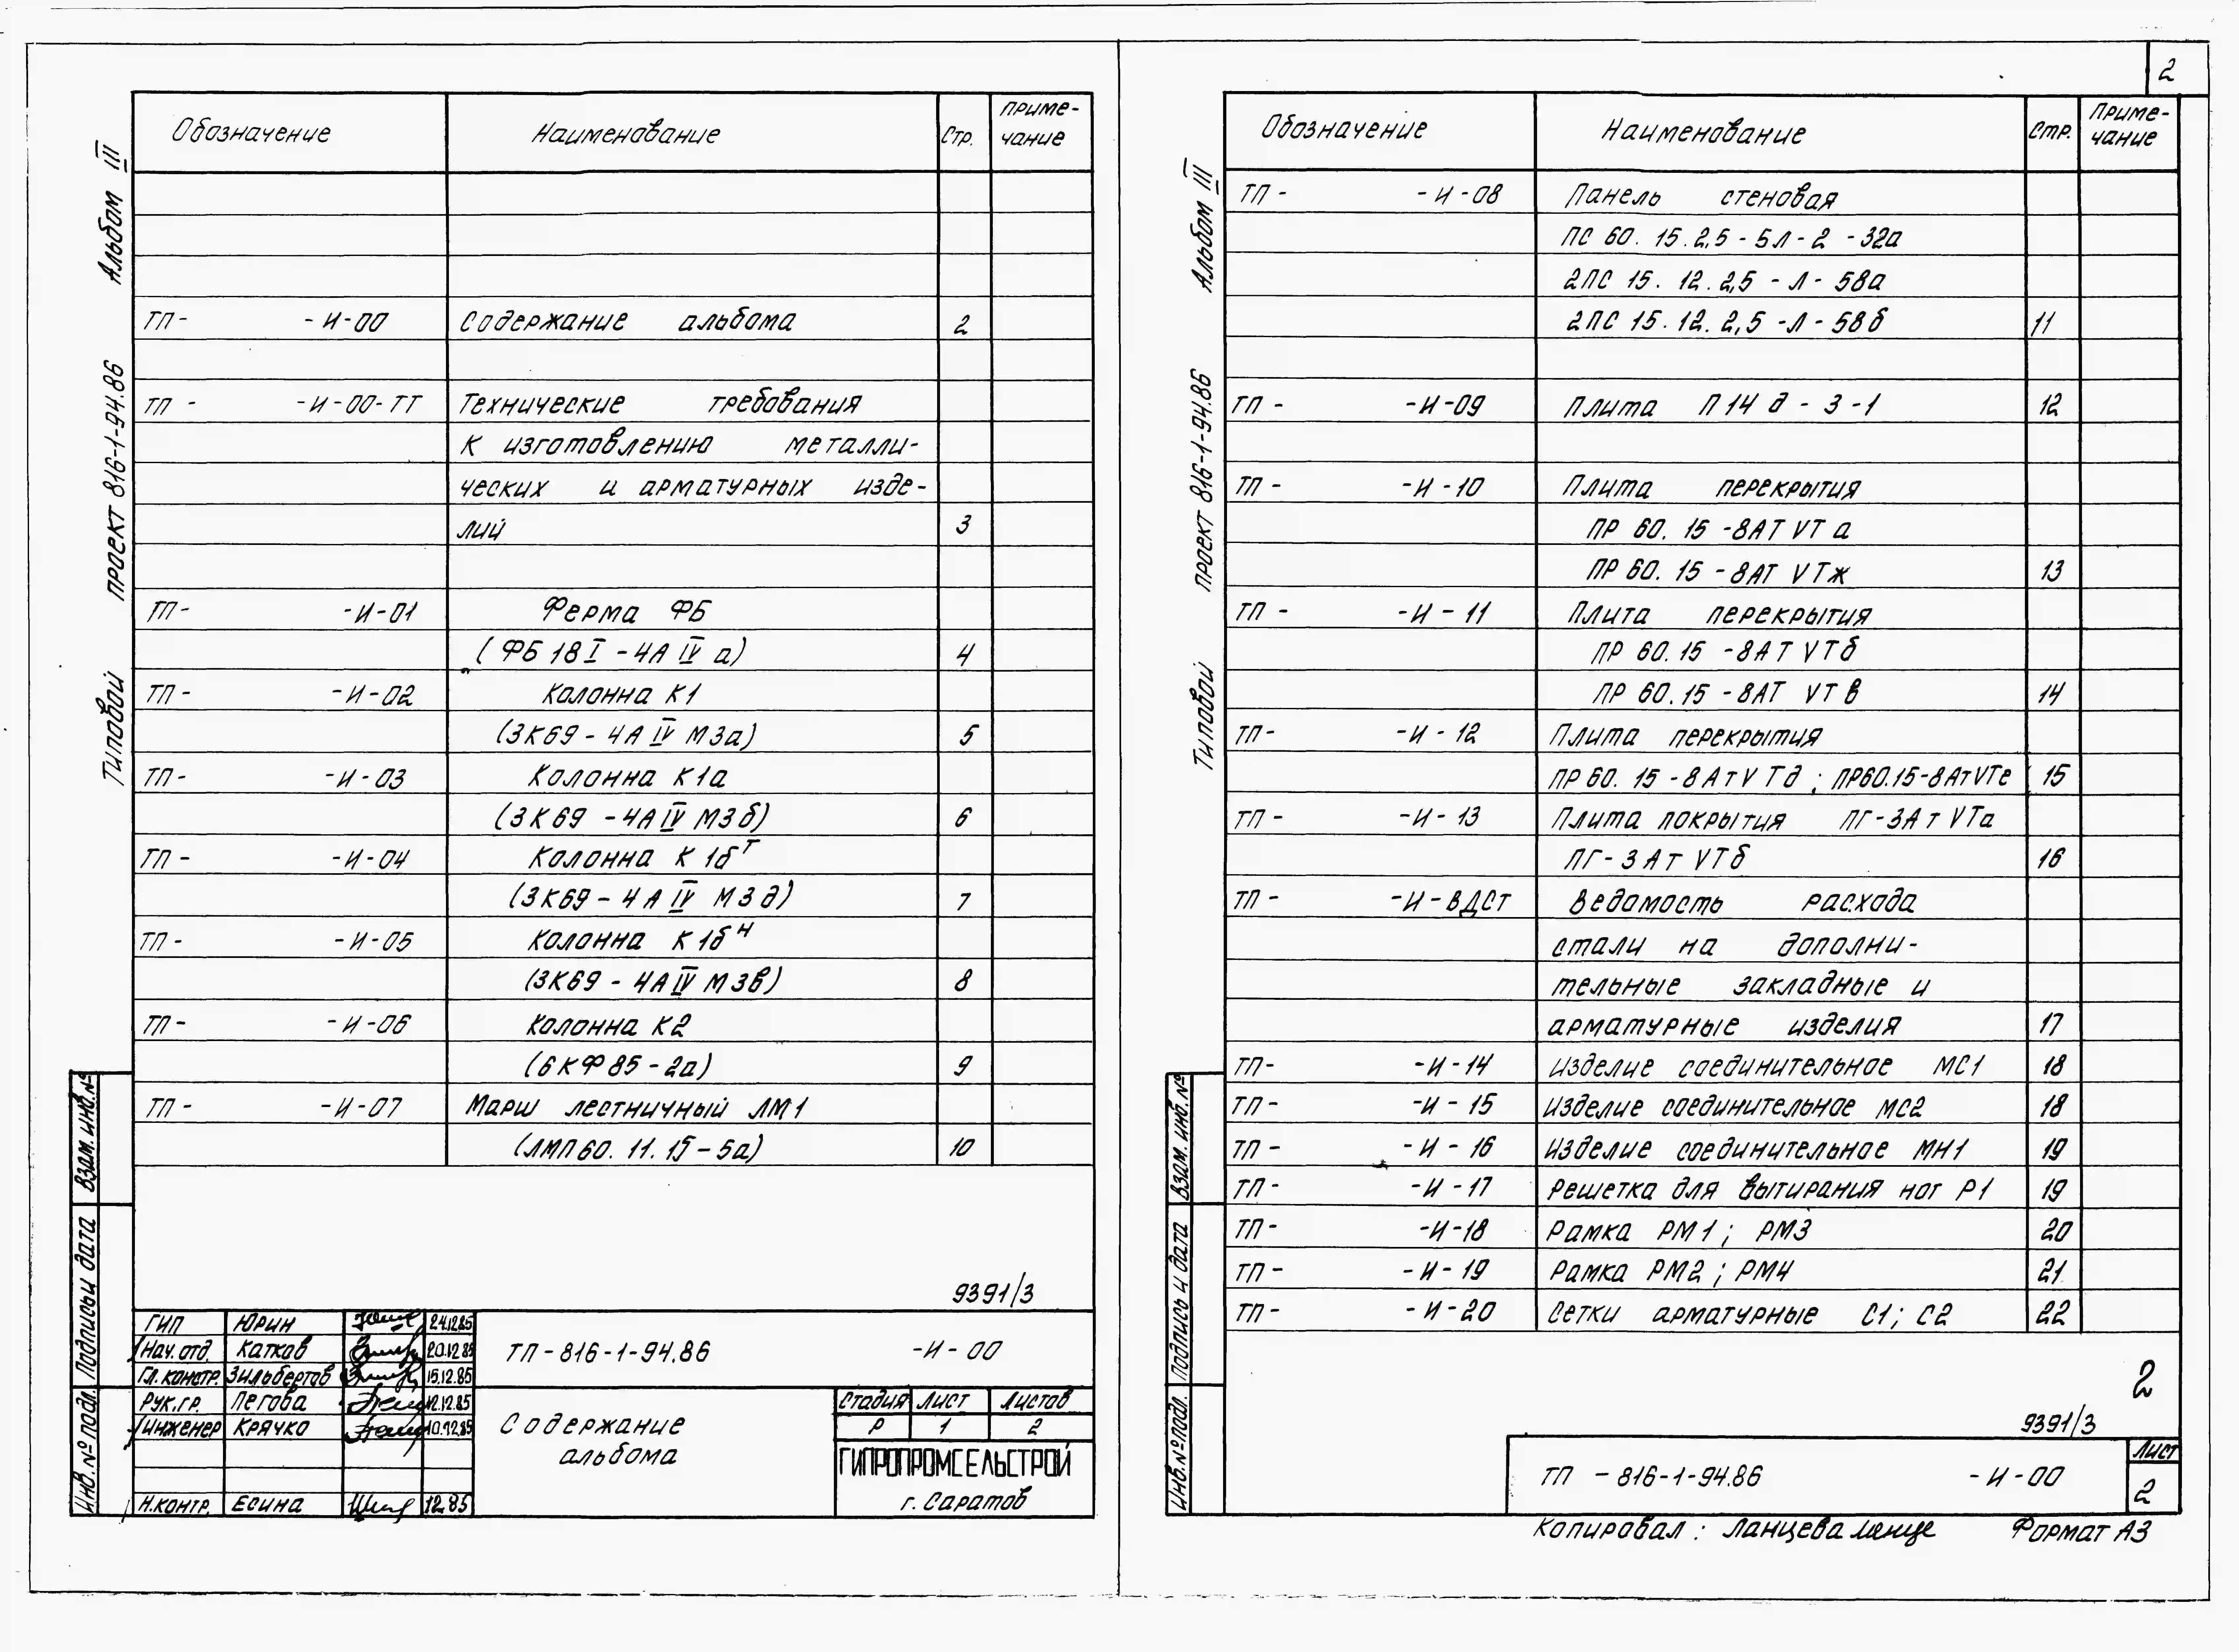 2
Альбом III
Типовой проект 816-1-94.86
Обозначение Наименование Стр. Приме-
чание
ТП- -И-00 Содержание альбома 2
ТП - -И-00-ТТ Технические требования
к изготовлению металли-
ческих и арматурных изде-
лий 3
ТП- -И-01 Ферма ФБ
(ФБ 18 I -4А IV а) 4
ТП- -И-02 Колонна К1
(3К69 - 4А IV М3а) 5
ТП- -И-03 Колонна К1а
(3К69 -4А IV М3б) 6
ТП- -И-04 Колонна К1бᵀ
(3К69 - 4А IV М3д) 7
ТП- -И-05 Колонна К1бᴴ
(3К69 - 4А IV М3в) 8
ТП- -И-06 Колонна К2
(6КФ85-2а) 9
ТП- -И-07 Марш лестничный ЛМ1
(ЛМП60. 11. 15-5а) 10
9391/3
Взам. инв.№
Подпись и дата
Инв.№ подл.
ГИП Юрин 24.12.85
Нач. отд. Катков 20.12.85
Гл. констр. Зильбертов 15.12.85
Рук.гр. Пегова 12.12.85
Инженер Крячко 10.12.85
Н.контр. Есина 12.85
ТП-816-1-94.86 -И-00
Содержание
альбома
Стадия Лист Листов
Р 1 2
ГИПРОПРОМСЕЛЬСТРОЙ
г. Саратов
Альбом III
Типовой проект 816-1-94.86
Обозначение Наименование Стр. Приме-
чание
ТП - -И-08 Панель стеновая
ПС 60. 15.2,5-5Л-2 -32а
2ПС 15. 12. 2,5 -Л- 58а
2ПС 15. 12. 2,5 -Л- 58б 11
ТП - -И-09 Плита П 14 д - 3 -1 12
ТП - -И-10 Плита перекрытия
ПР 60. 15 -8АТ VТ а
ПР 60. 15 -8АТ VТж 13
ТП - -И-11 Плита перекрытия
ПР 60. 15 -8АТ VТб
ПР 60.15 -8АТ VТв 14
ТП- -И-12 Плита перекрытия
ПР 60. 15 -8АтV Тд ; ПР60.15-8АтVТе 15
ТП - -И-13 Плита покрытия ПГ-3Ат VТа
ПГ-3Ат VТб 16
ТП - -И-ВДСТ Ведомость расхода
стали на дополни-
тельные закладные и
арматурные изделия 17
ТП- -И-14 Изделие соединительное МС1 18
ТП- -И-15 Изделие соединительное МС2 18
ТП - -И-16 Изделие соединительное МН1 19
ТП- -И-17 Решетка для вытирания ног Р1 19
ТП- -И-18 Рамка РМ1; РМ3 20
ТП- -И-19 Рамка РМ2; РМ4 21
ТП- -И-20 Сетки арматурные С1; С2 22
2
9391/3
Взам. инв.№
Подпись и дата
Инв.№ подл.
ТП - 816-1-94.86 -И-00
Лист
2
Копировал: Ланцева
Формат А3